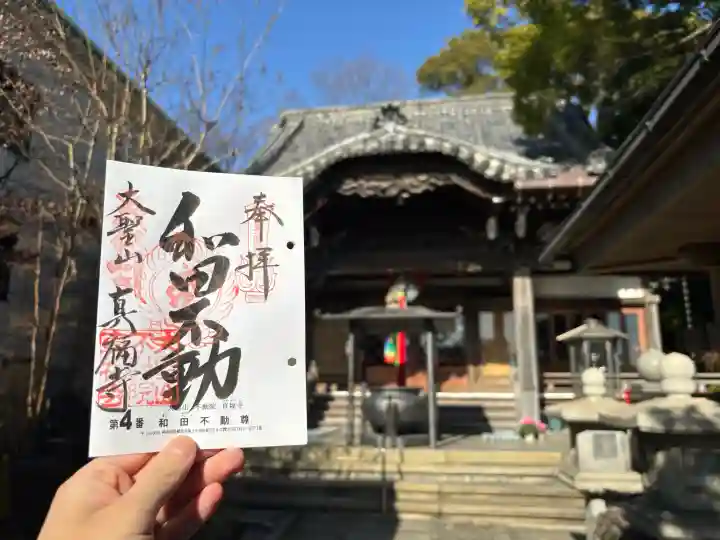 奉拝
和田不動
大聖山
真福寺
第4番 和田不動尊